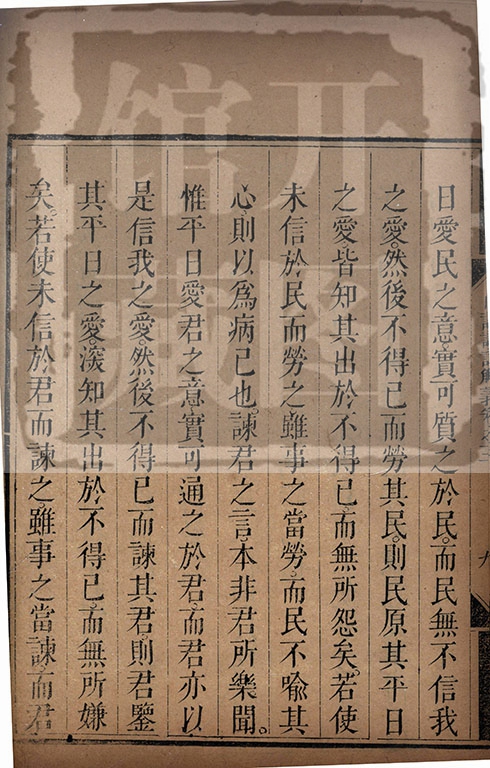 日愛民之意實可質之於民而民無不信我
之愛然後不得已而勞其民則民原其平日
之愛皆知其出於不得已而無所怨矣若使
未信於民而勞之雖事之當勞而民不喻其
心則以為病已也諫君之言本非君所樂聞
惟平日愛君之意實可通之於君而君亦以
是信我之愛然後不得已而諫其君則君鑒
其平日之愛深知其出於不得已而無所嫌
矣若使未信於君而諫之雖事之當諫而君